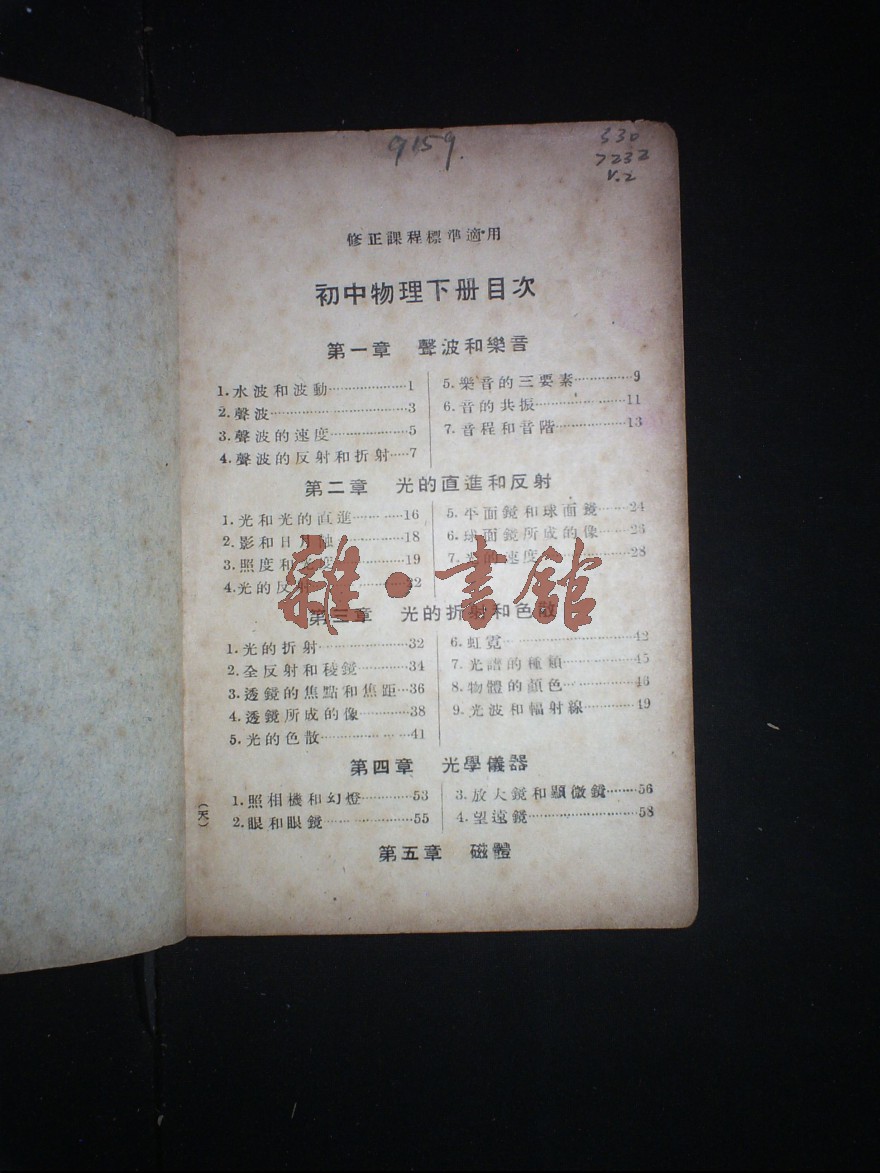 9159.
530
7232
V.2
修正課程標準適用
初中物理下册目次
第一章 聲波和樂音
1.水波和波動…………………1
2.聲波……………………………3
3.聲波的速度…………………5
4.聲波的反射和折射……7
5.樂音的三要素……………9
6.音的共振……………………11
7.音程和音階………………13
第二章 光的直進和反射
1.光和光的直進…………16
2.影和日月蝕………………18
3.照度和光度………………19
4.光的反射……………………22
5.平面鏡和球面鏡………24
6.球面鏡所成的像………26
7.光的速度……………………28
第三章 光的折射和色散
1.光的折射……………………32
2.全反射和稜鏡……………34
3.透鏡的焦點和焦距…36
4.透鏡所成的像……………38
5.光的色散……………………41
6.虹霓……………………………42
7.光譜的種類………………45
8.物體的顏色………………46
9.光波和輻射線……………49
第四章 光學儀器
1.照相機和幻燈……………53
2.眼和眼鏡……………………55
3.放大鏡和顯微鏡………56
4.望遠鏡………………………58
第五章 磁體
(天)
雜·書館